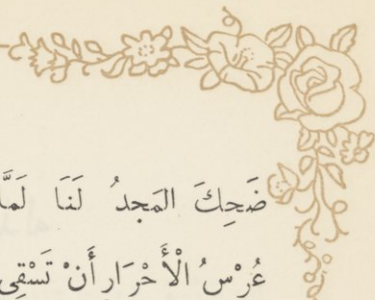 ضَحِكَ المَجدُ لَنَا لَمَّا
عُرْسُ الْأَحْرَارِ أَنْ تَسْقِي